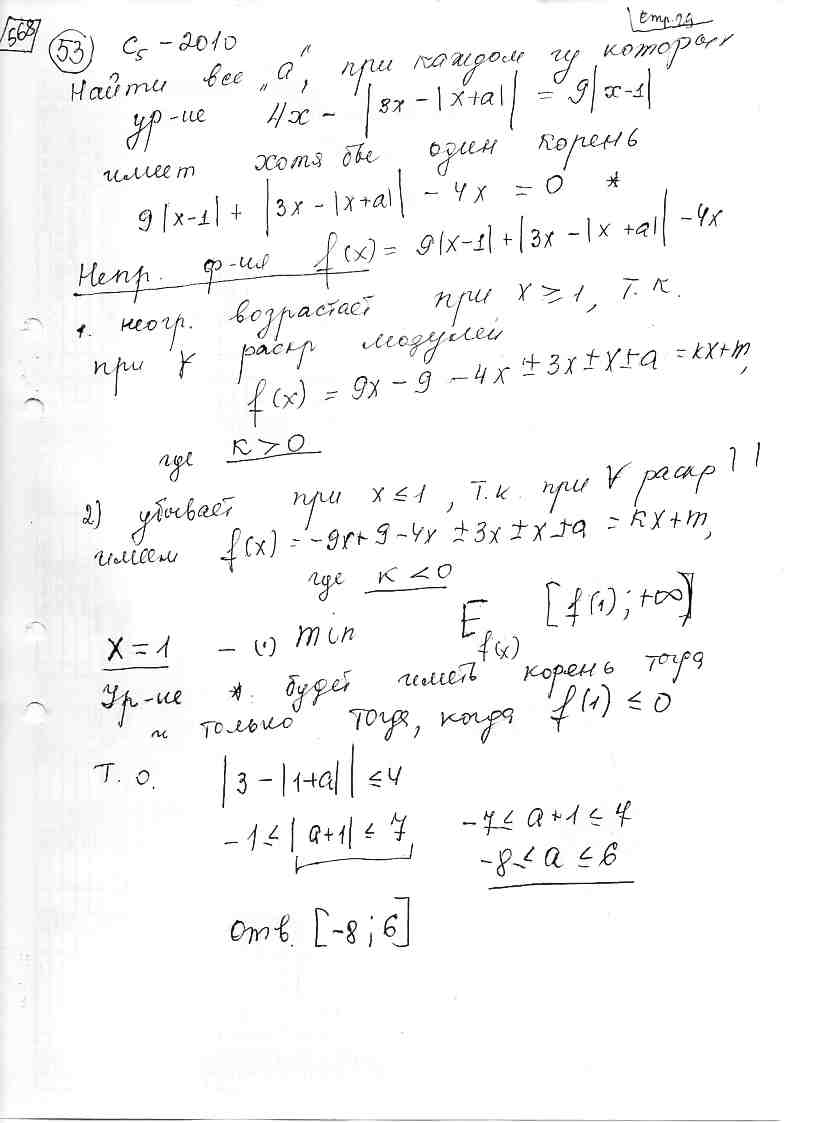 568
стр. 29
53 C5 - 2010
Найти все "a", при каждом из которых
ур-ие 4x - |3x - |x+a|| = 9|x-1|
имеет хотя бы один корень
9|x-1| + |3x - |x+a|| - 4x = 0 *
Непр. ф-ия f(x) = 9|x-1| + |3x - |x+a|| - 4x
1. неогр. возрастает при x ≥ 1, т.к.
при ∀ раскр модулей
f(x) = 9x - 9 - 4x ± 3x ± x ± a = kx+m,
где k > 0
2) убывает при x ≤ 1, т.к. при ∀ раскр | |
имеем f(x) = -9x+9-4x ± 3x ± x ± a = kx+m,
где k < 0
x = 1 - (·) min E f(x) [f(1); +∞)
Ур-ие * будет иметь корень тогда
и только тогда, когда f(1) ≤ 0
Т. о. |3 - |1+a|| ≤ 4
-1 ≤ |a+1| ≤ 7 -7 ≤ a+1 ≤ 7
-8 ≤ a ≤ 6
Отв. [-8; 6]